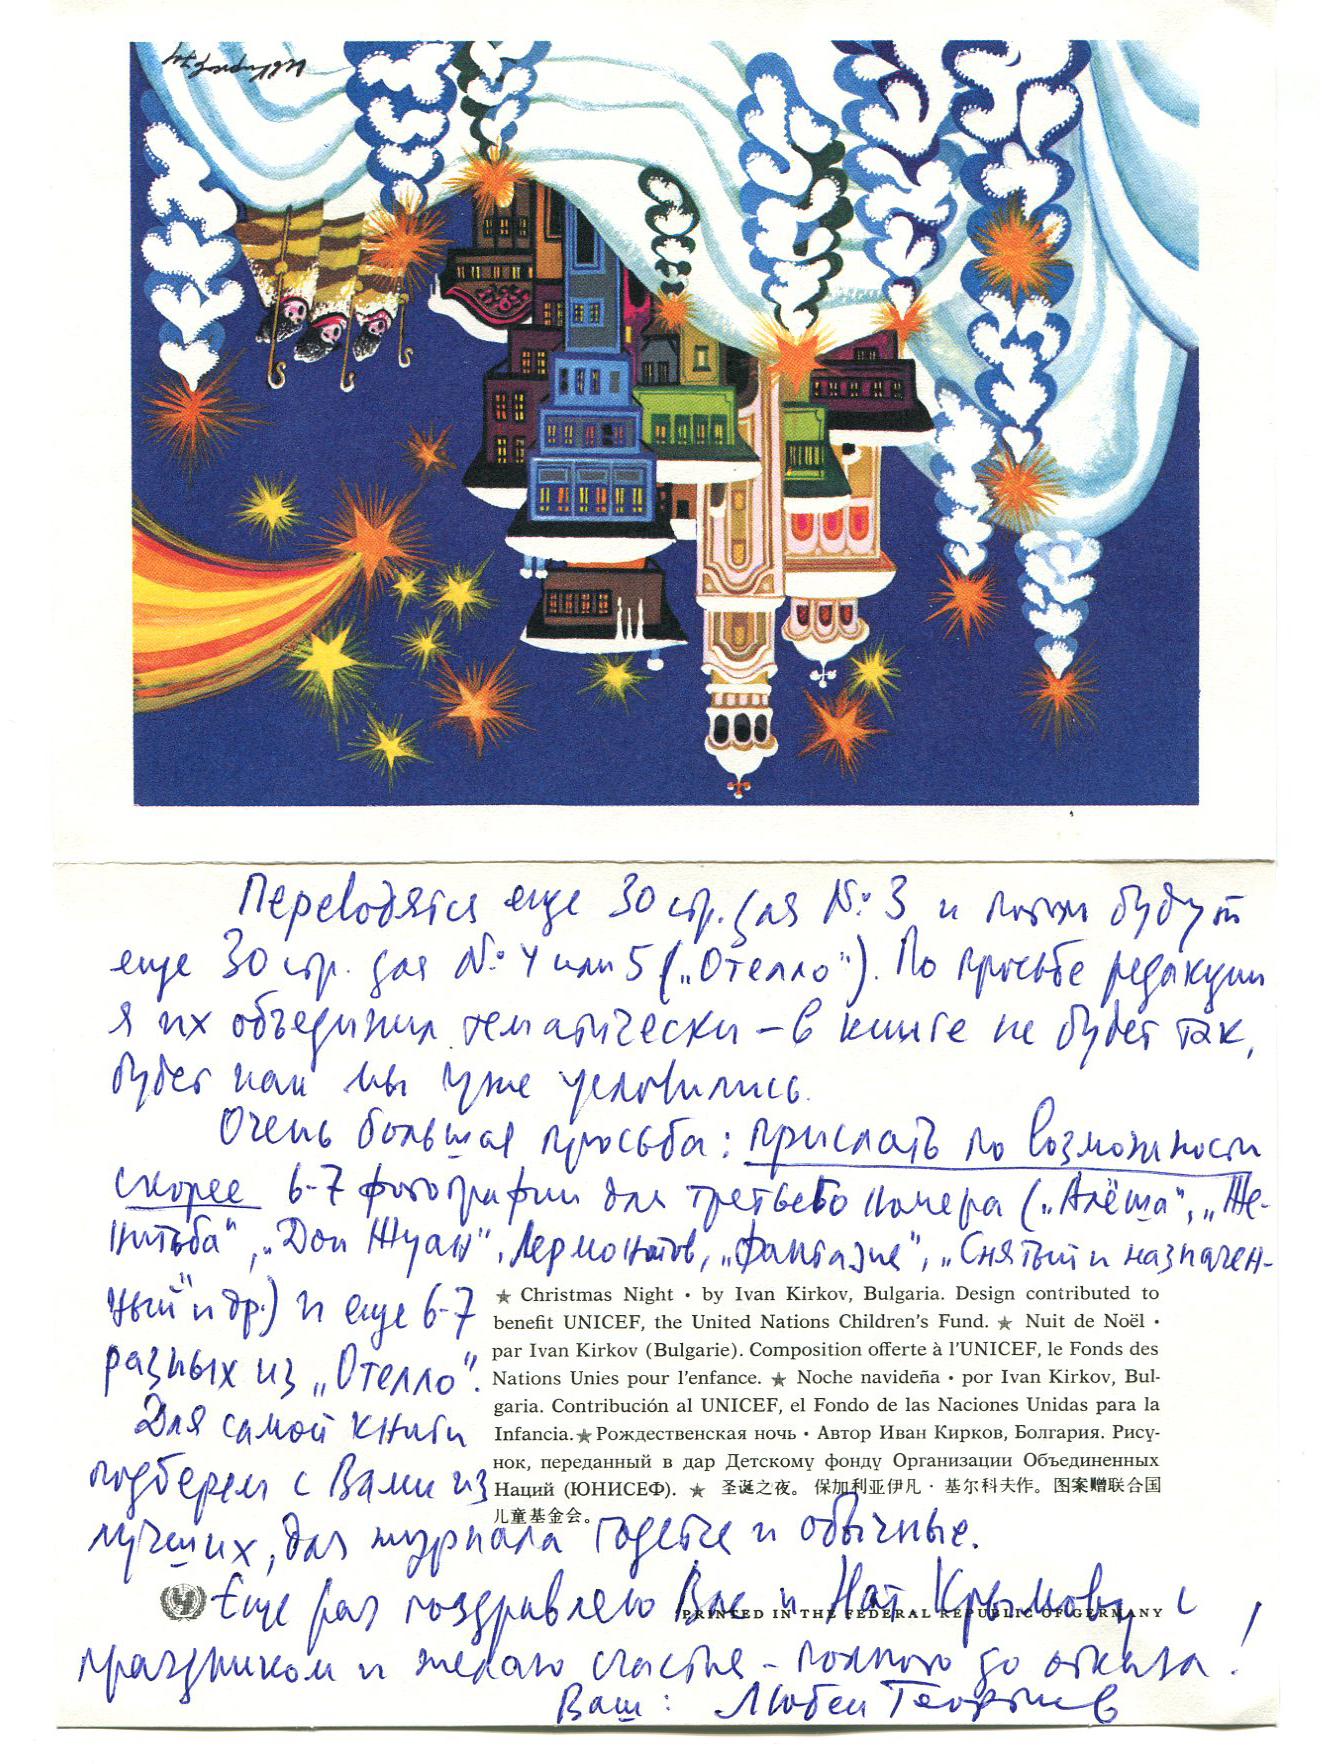 Переводятся еще 30 стр. для №: 3 и потом будут
еще 30 стр. для №: 4 или 5 („Отелло“). По просьбе редакции
я их объединил тематически – в книге не будет так,
будет как мы уже условились.
Очень большая просьба: прислать по возможности
скорее 6-7 фотографии для третьего номера („Алёша“, „Же-
нитьба“, „Дон Жуан“, Лермонтов, „Фантазия“, „Снятый и назначен-
ный“ и др.) и еще 6-7
разных из „Отелло“.
Для самой книги
подберем с Вами из
лучших, для журнала годятся и обычные.
★ Christmas Night • by Ivan Kirkov, Bulgaria. Design contributed to
benefit UNICEF, the United Nations Children's Fund. ★ Nuit de Noël •
par Ivan Kirkov (Bulgarie). Composition offerte à l'UNICEF, le Fonds des
Nations Unies pour l'enfance. ★ Noche navideña • por Ivan Kirkov, Bul-
garia. Contribución al UNICEF, el Fondo de las Naciones Unidas para la
Infancia. ★ Рождественская ночь • Автор Иван Кирков, Болгария. Рису-
нок, переданный в дар Детскому фонду Организации Объединенных
Наций (ЮНИСЕФ). ★ 圣诞之夜。 保加利亚伊凡 · 基尔科夫作。图案赠联合国
儿童基金会。
Еще раз поздравляю Вас и Нат Крымову с
PRINTED IN THE FEDERAL REPUBLIC OF GERMANY
праздником и желаю счастья – полного до отказа!
Ваш: Любен Георгиев